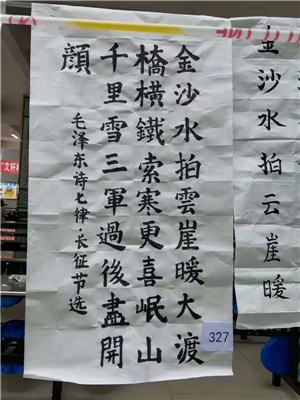 金沙水拍雲崖暖大渡
橋橫鐵索寒更喜岷山
千里雪三軍過後盡開
顔
毛泽东诗七律·长征节选
327
金沙水拍云崖暖